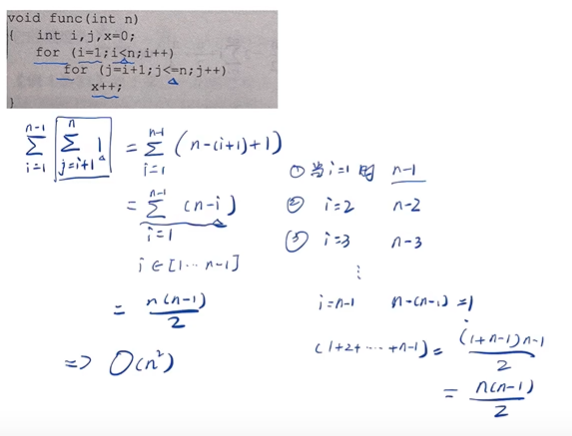 void func(int n)
{ int i,j,x=0;
for (i=1;i<n;i++)
for (j=i+1;j<=n;j++)
x++;
}
n-1 Σ i=1 n Σ j=i+1 1 = n-1 Σ i=1 (n-(i+1)+1)
= n-1 Σ i=1 (n-i)
i∈[1…n-1]
= n(n-1) / 2
=> O(n²)
① 当i=1时 n-1
② i=2 n-2
③ i=3 n-3
⋮
i=n-1 n-(n-1)=1
(1+2+…+n-1)= (1+n-1)n-1 / 2
= n(n-1) / 2